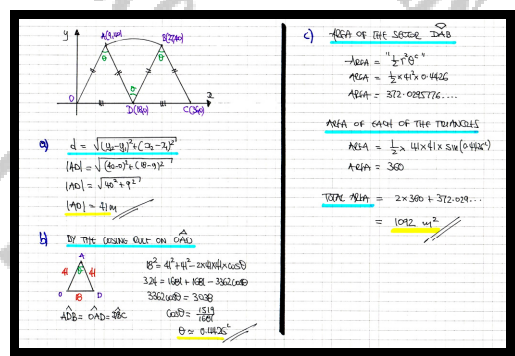 y
A(9,40)
B(27,40)
θ
θ
θ
O
D(18,0)
C(36,0)
x
a) d = √(y₂-y₁)²+(x₂-x₁)²
|AD| = √(40-0)²+(18-9)²
|AD| = √40²+9²
|AD| = 41 m
b) BY THE COSINE RULE ON OÂD
A
41 θ 41
O 18 D
AD̂B = OÂD = DB̂C
18² = 41²+41²-2×41×41×cosθ
324 = 1681 + 1681 - 3362cosθ
3362cosθ = 3038
cosθ = 1519/1681
θ ≈ 0.4426ᶜ
c) AREA OF THE SECTOR
AREA = "½r²θᶜ"
AREA = ½×41²×0.4426
AREA = 372.0295776....
AREA OF EACH OF THE TRIANGLES
AREA = ½× 41×41× sin(0.4426ᶜ)
AREA = 360
TOTAL AREA = 2×360 + 372.029...
= 1092 m²